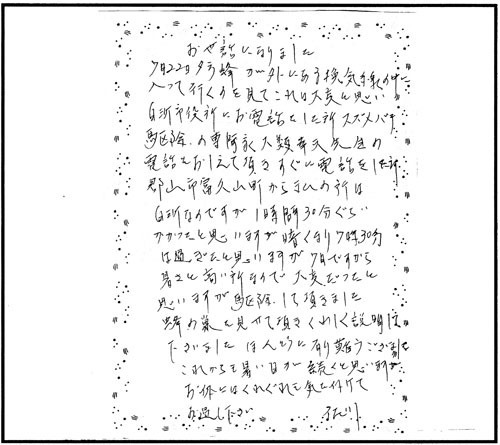 お世話になりました
7月22日夕方蜂が外にある換気扇の中に
入って行くのを見てこれは大変と思い
白河市役所にお電話をした所スズメバチ
駆除の専門家大類幸夫先生の
電話をおしえて頂きすぐに電話をした所
郡山市富久山町から私の所は
白河なのですが1時間30分ぐらい
かかったと思いますが暗くなり7時30分
は過ぎたと思いますが7月ですから
暑さと高い所なので大変だったと
思いますが駆除して頂きました
蜂の巣を見せて頂きくわしく説明して
下さいました ほんとうに有難うございました
これからも暑い日が続くと思いますが
お体にはくれぐれも気を付けて
お過し下さい